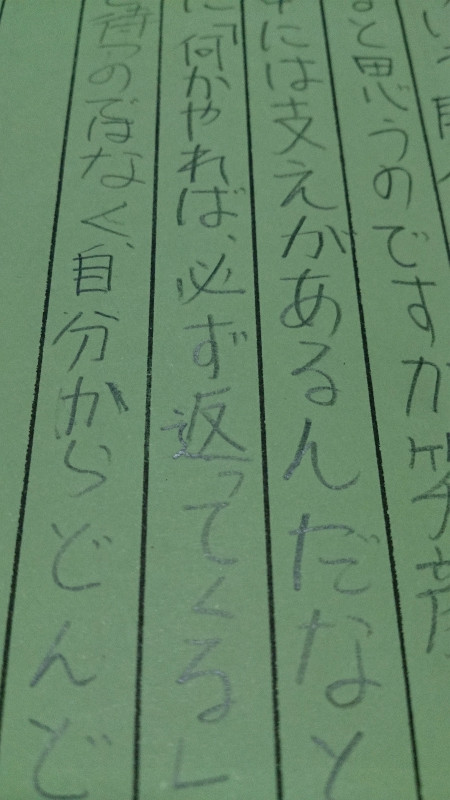 と思うのですが
中には支えがあるんだなと
に「何かやれば、必ず返ってくる」
待つのではなく、自分からどんど